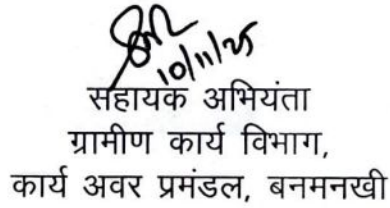 10/11/25
सहायक अभियंता
ग्रामीण कार्य विभाग,
कार्य अवर प्रमंडल, बनमनखी